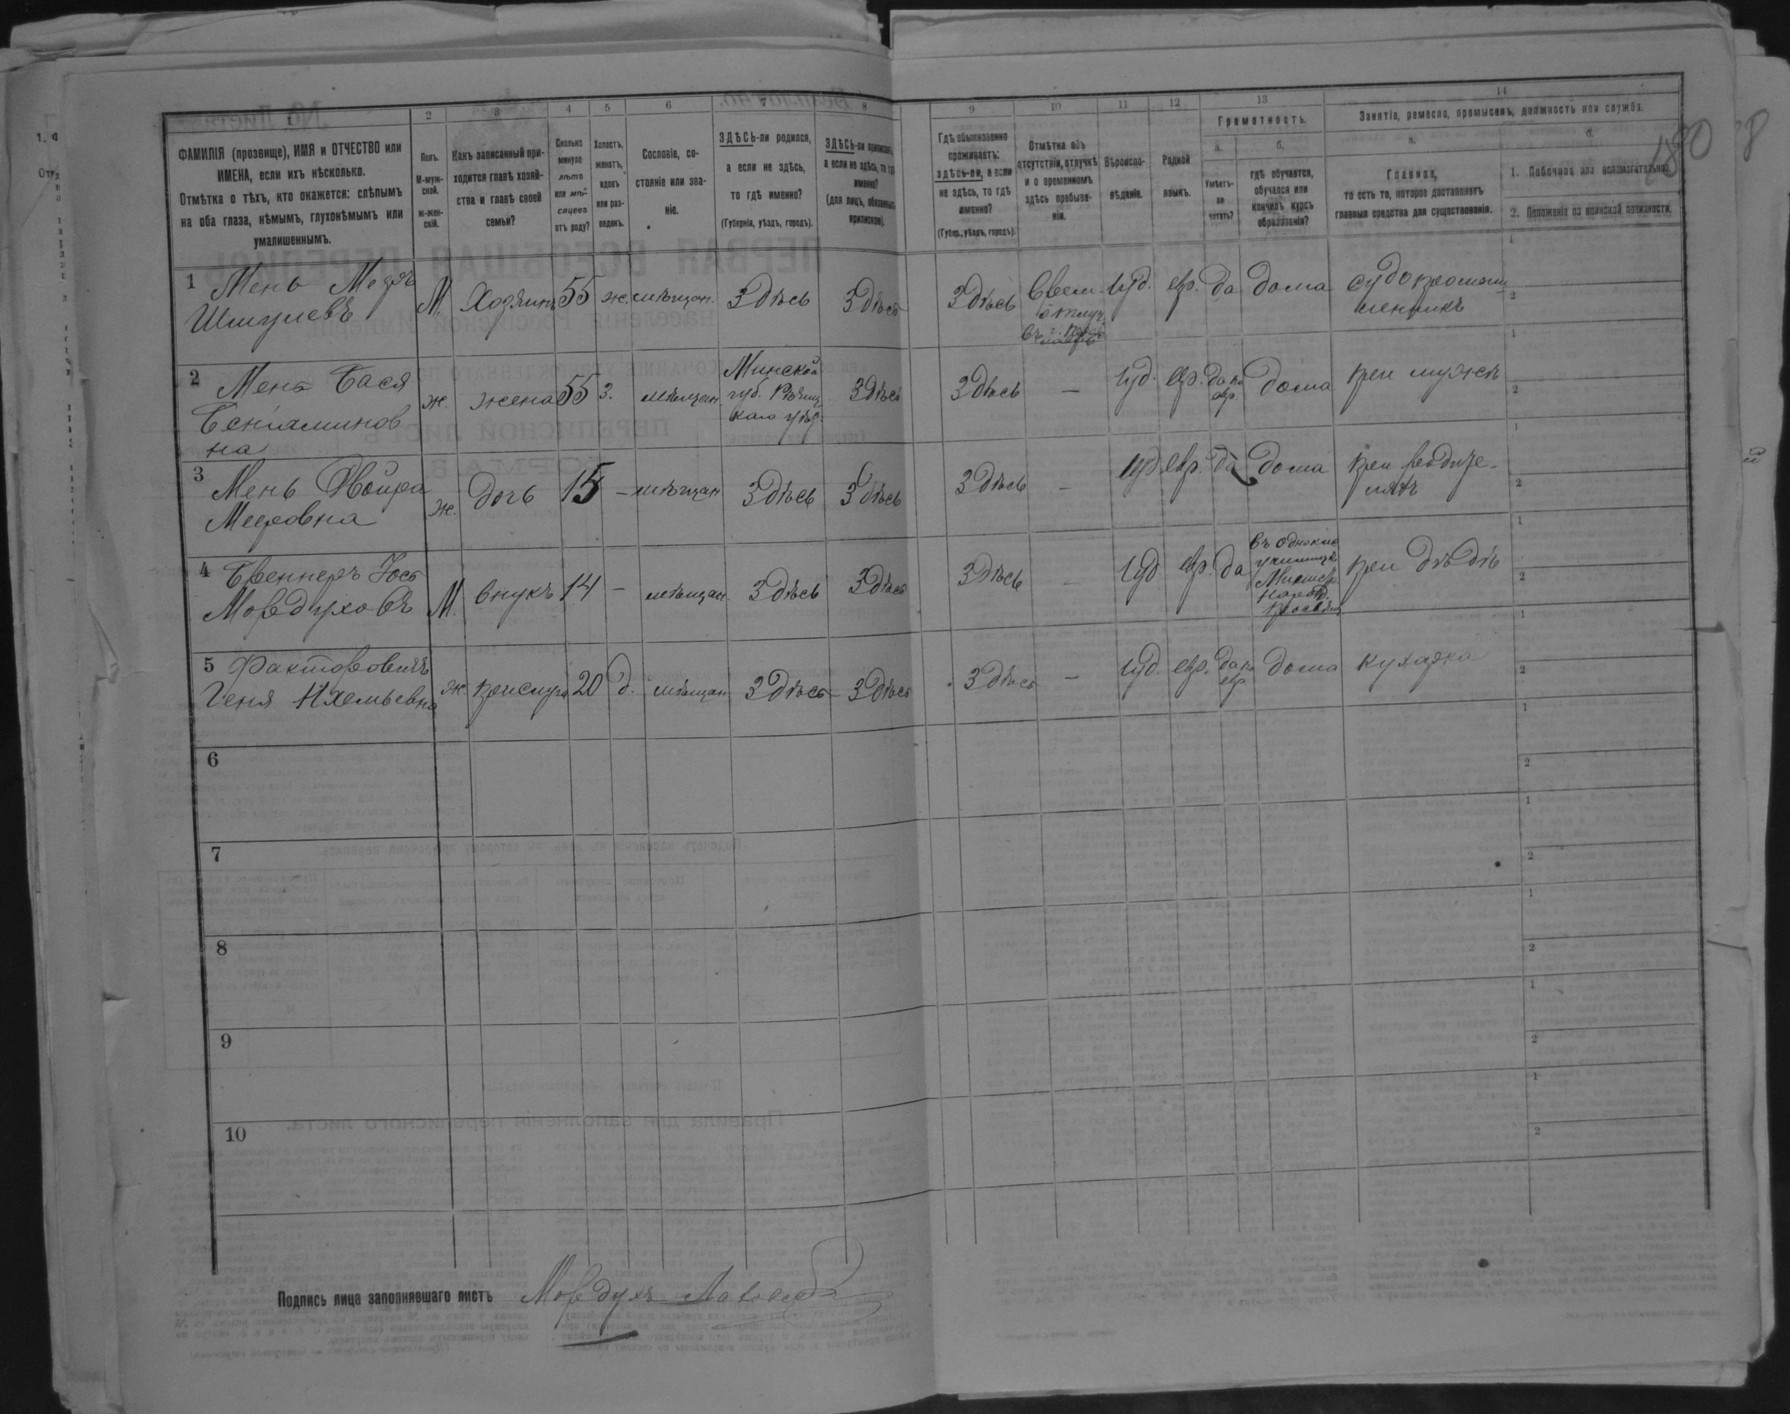 1
2
3
4
5
6
7
8
9
10
11
12
13
14
ФАМИЛІЯ (прозвище), ИМЯ и ОТЧЕСТВО или
ИМЕНА, если ихъ нѣсколько.
Отмѣтка о тѣхъ, кто окажется: слѣпымъ
на оба глаза, нѣмымъ, глухонѣмымъ или
умалишеннымъ.
Полъ.
М-муж-
ской.
Ж-жен-
скій.
Какъ записанный при-
ходится главѣ хозяй-
ства и главѣ своей
семьи?
Сколько
минуло
лѣтъ
или мѣ-
сяцевъ
отъ роду?
Холостъ,
женатъ,
вдовъ
или раз-
веденъ.
Сословіе, со-
стояніе или зва-
ніе.
ЗДѢСЬ-ли родился,
а если не здѣсь,
то гдѣ именно?
(Губернія, уѣздъ, городъ).
ЗДѢСЬ-ли приписанъ,
а если не здѣсь, то гдѣ
именно?
(для лицъ, обязанныхъ
припиской).
Гдѣ обыкновенно
проживаетъ:
здѣсь-ли, а если
не здѣсь, то гдѣ
именно?
(Губерн., уѣздъ, городъ).
Отмѣтка объ
отсутствіи, отлучкѣ
и о временномъ
здѣсь пребыва-
ніи.
Вѣроиспо-
вѣданіе.
Родной
языкъ.
Грамотность.
а.
б.
Умѣетъ-
ли
читать?
гдѣ обучается,
обучался или
кончилъ курсъ
образованія?
Занятіе, ремесло, промыселъ, должность или служба.
а.
б.
Главное,
то есть то, которое доставляетъ
главныя средства для существованія.
1. Побочное или вспомогательное.
2. Положеніе по воинской повинности.
1 Мень Меэръ
Шмулевъ
М. Хозяинъ 55 ж. мѣщан. Здѣсь Здѣсь Здѣсь
Іуд. евр. да дома
2 Мень Бася
Беніаминов
на
ж. жена 55 з. мѣщан.
Минской
губ. Рѣчиц
каго уѣзд.
Здѣсь Здѣсь — Іуд. евр. да по
евр.
дома при мужѣ
3 Мень Двойра
Мееровна
ж. дочь 15 — мѣщан Здѣсь Здѣсь Здѣсь — Іуд евр. да дома при родите-
ляхъ
4
Мордуховъ
М. внукъ 14 — мѣщан Здѣсь Здѣсь Здѣсь — Іуд евр. да
въ однокл
училищѣ
Министр
Народ.
Просвѣщ
при дѣдѣ
5 Факторовичъ
Геня
ж прислуга 20 д. мѣщан Здѣсь Здѣсь Здѣсь — Іуд. евр. да по
евр
дома кухарка
6
7
8
9
10
Подпись лица заполнявшаго листъ Мордухъ